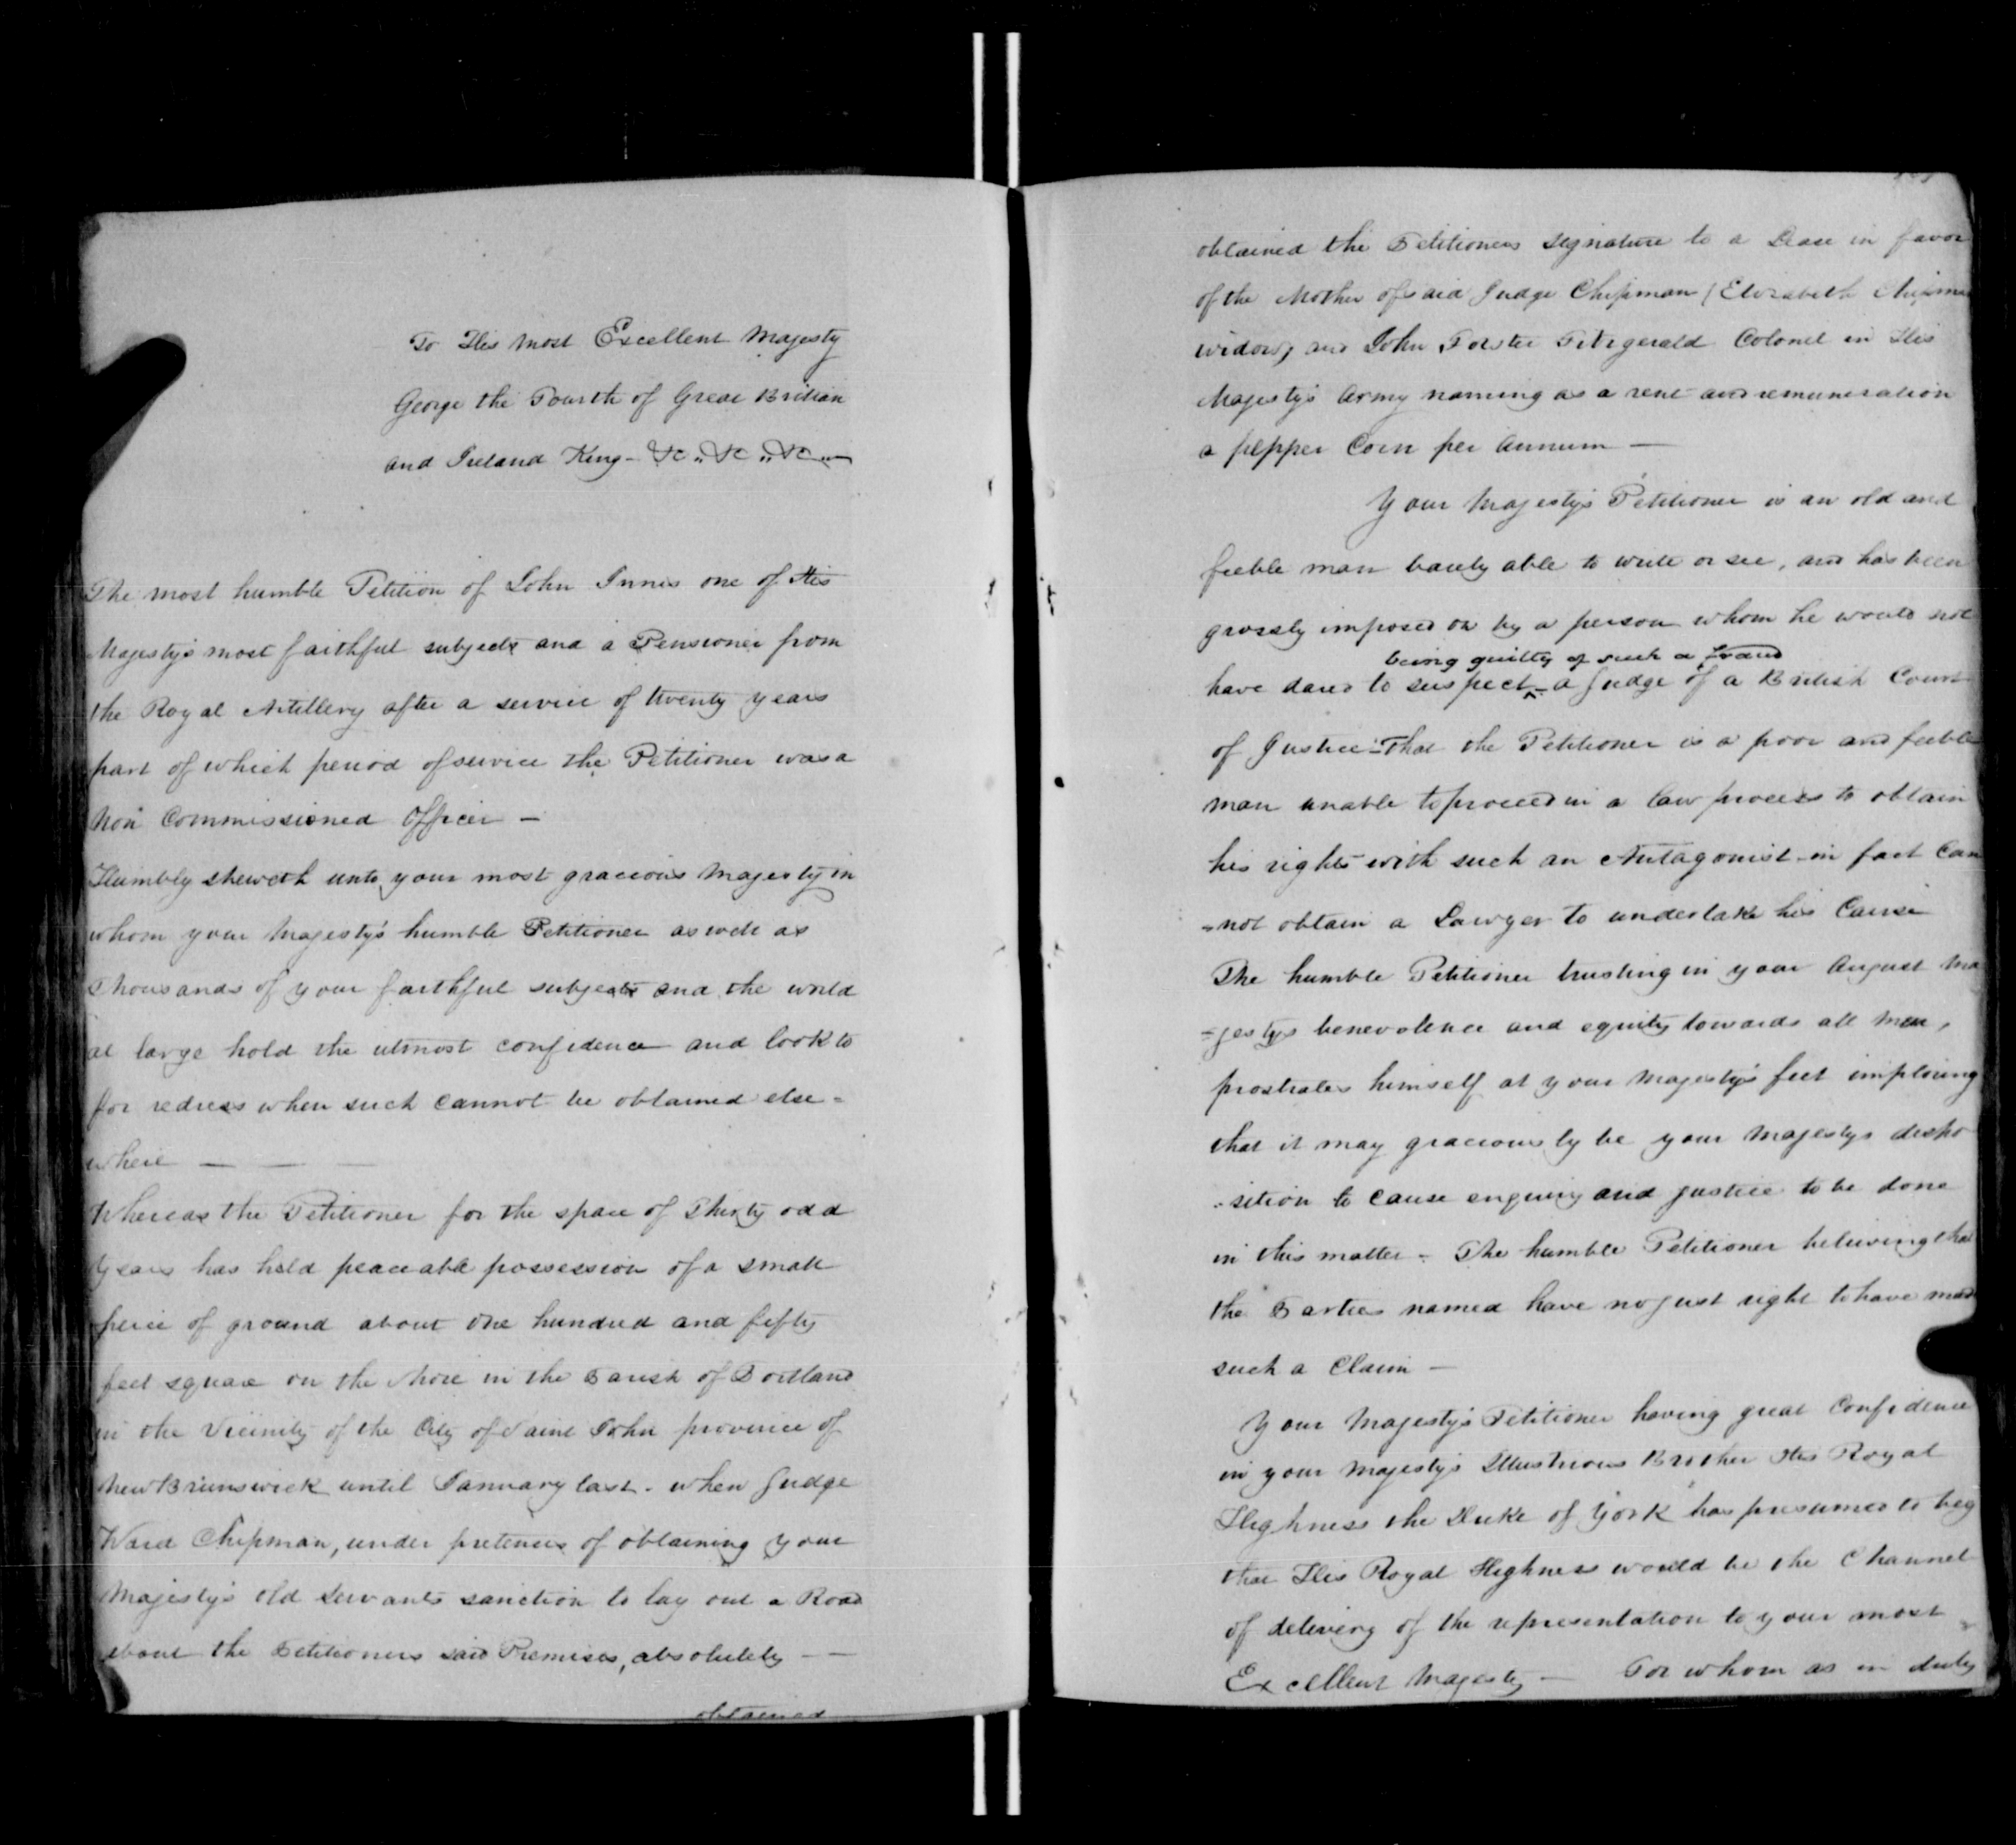 To His Most Excellent Majesty
George the Fourth of Great Britian
and Ireland King - &c „ &c „ &c „ —
The most humble Petition of John Innes one of His
Majesty's most faithful subjects and a Pensioner from
the Royal Artillery after a service of twenty years
part of which period of service the Petitioner was a
Non Commissioned Officer —
Humbly sheweth unto your most gracious Majesty in
whom your Majesty's humble Petitioner as well as
Thousands of your faithful subjects and the world
at large hold the utmost confidence and look to
for redress when such cannot be obtained else =
where — — —
Whereas the Petitioner for the space of Thirty odd
years has held peaceable possession of a small
peice of ground about one hundred and fifty
feet square on the shore in the Parish of Portland
in the Vicinity of the City of Saint John province of
New Brunswick until January last - when Judge
Ward Chipman, under pretences of obtaining your
Majesty's old Servants sanction to lay out a Road
about the Petitioners said Premises, absolutely — —
obtained
obtained the Petitioners signature to a Lease in favor
of the Mother of said Judge Chipman (Elizabeth Chipman
widow) and John Forster Fitzgerald Colonel in His
Majesty's Army naming as a rent and remuneration
a pepper Corn per Annum —
Your Majesty's Petitioner is an old and
feeble man barely able to write or see, and has been
grossly imposed on by a person whom he would not
being guilty of such a fraud
have dared to suspect ^ - a Judge of a British Court
of Justice - That the Petitioner is a poor and feeble
man unable to proceed in a law process to obtain
his rights with such an Antagonist - in fact Can
= not obtain a Lawyer to undertake his Cause
The humble Petitioner trusting in your August Ma
= jestys benevolence and equity towards all men,
prostrates himself at your Majesty's feet imploring
that it may graciously be your Majestys dispo
= sition to cause enquiry and justice to be done
in this matter - The humble Petitioner believing that
the Parties named have no just right to have made
such a Claim —
Your Majesty's Petitioner having great Confidence
in your Majestys Illustrious Brother His Royal
Highness the Duke of York has presumed to beg
that His Royal Highness would be the Channel
of delivery of the representation to your most
Excellent Majesty — For whom as in duty